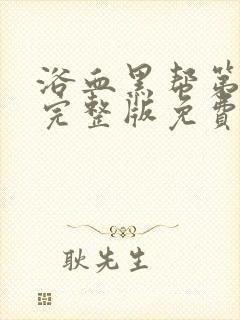 浴血黑帮第
完整版免费
耿先生